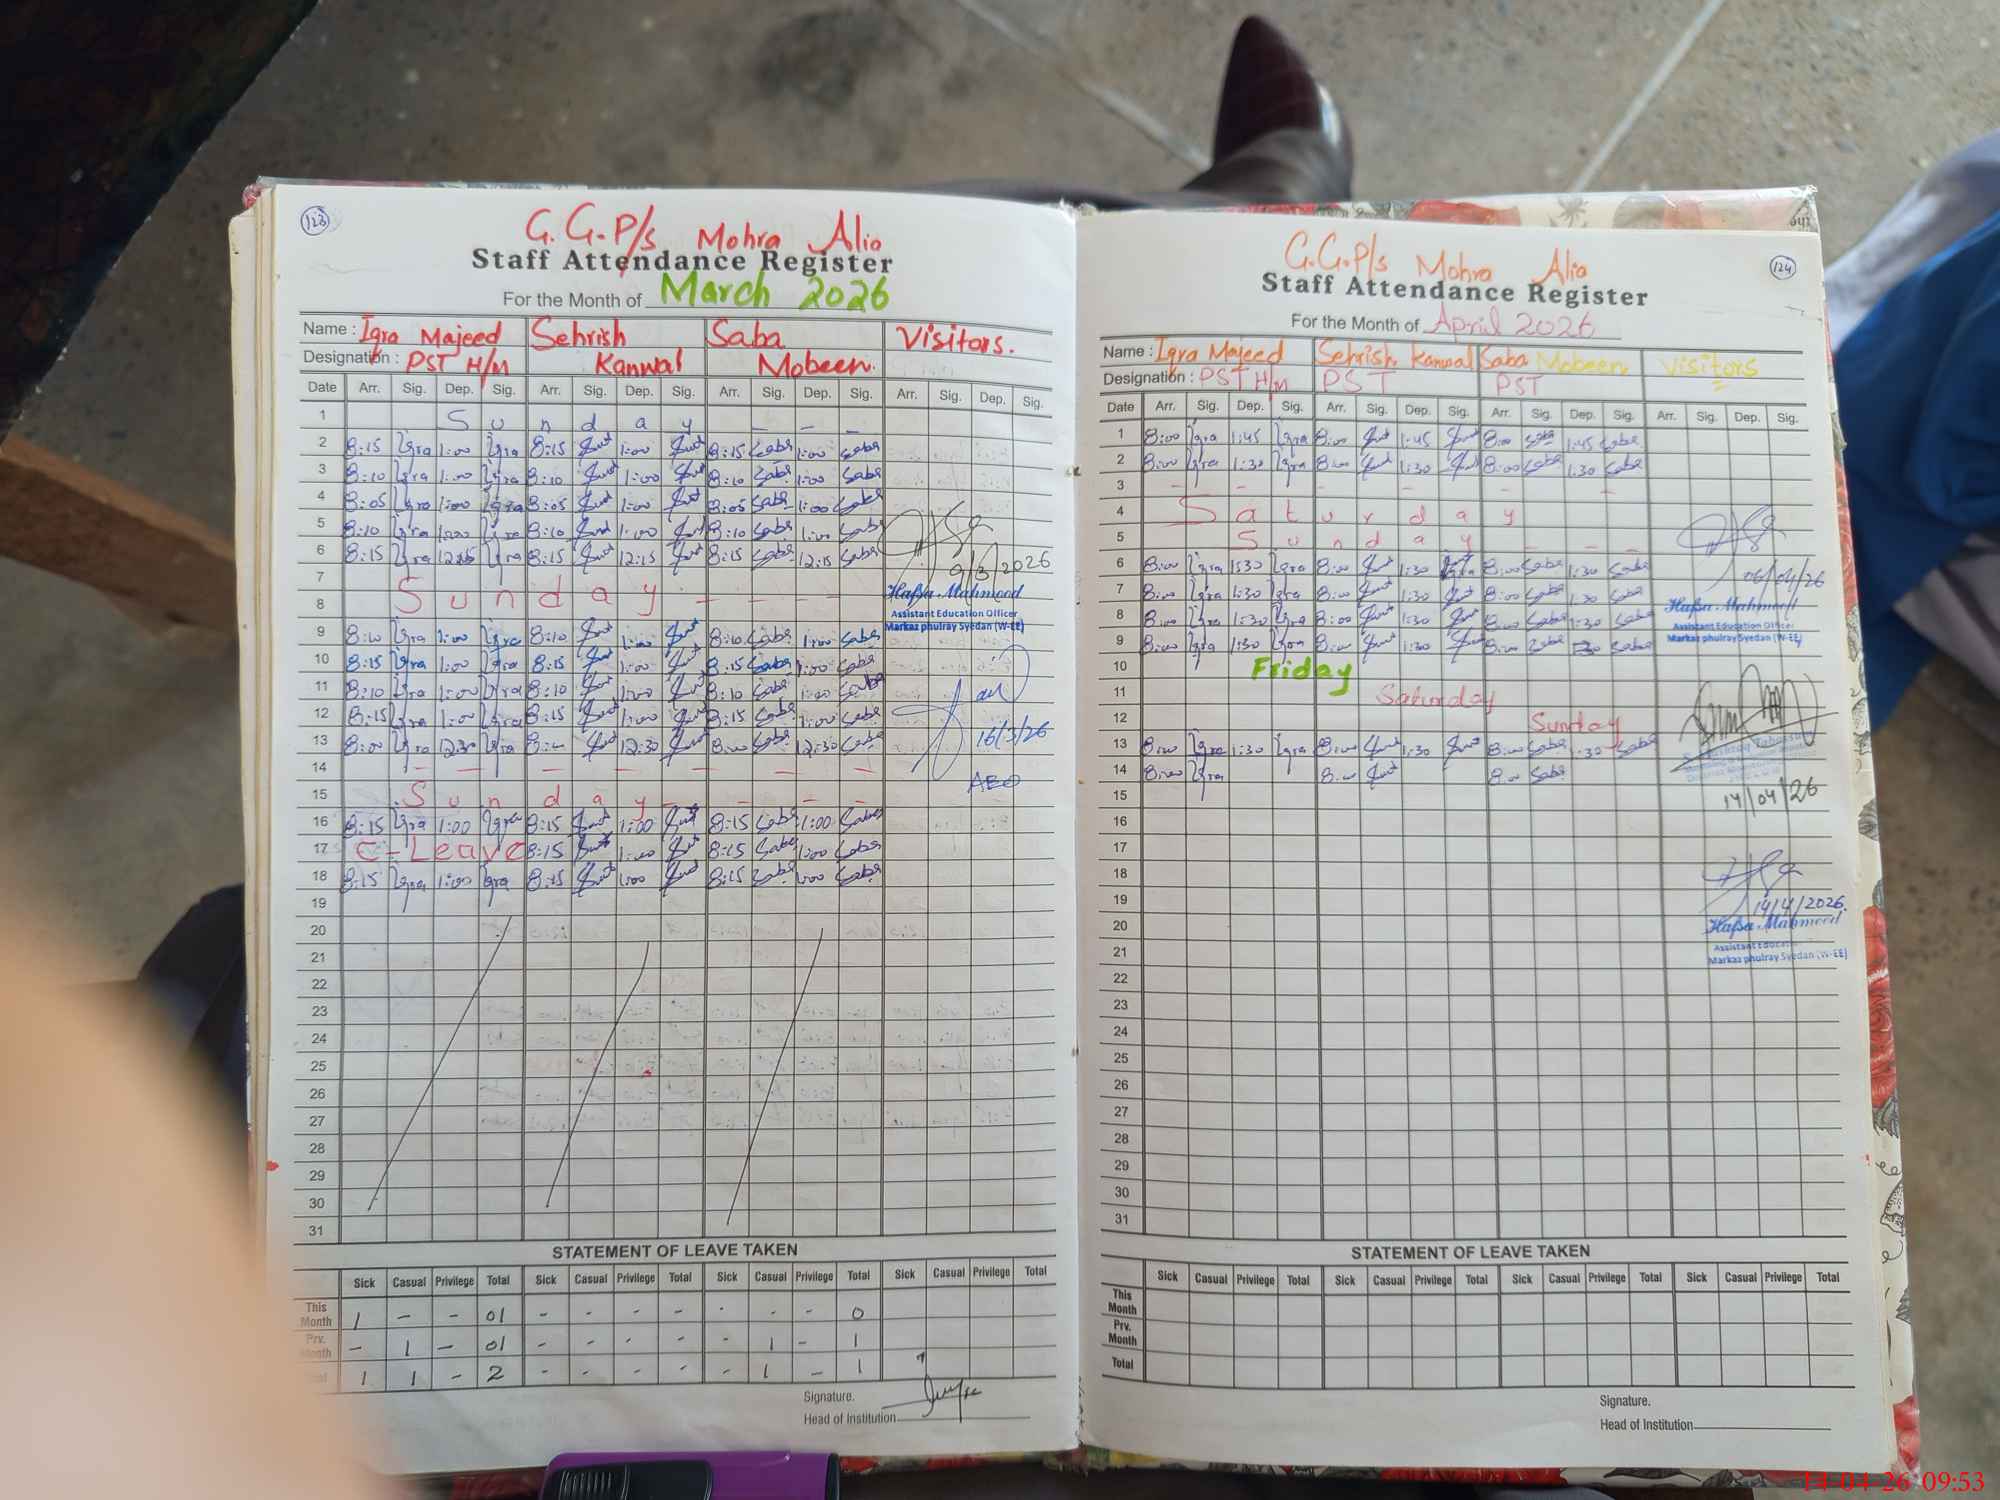 123
G.G.P/s Mohra Alia
Staff Attendance Register
For the Month of March 2026
Name : Iqra Majeed Sehrish Saba Visitors.
Designation : PST H/M Kanwal Mobeen.
Date Arr. Sig. Dep. Sig. Arr. Sig. Dep. Sig. Arr. Sig. Dep. Sig. Arr. Sig. Dep. Sig.
1 Sunday - - -
2 8:15 Iqra 1:00 Iqra 8:15 1:00 8:15 Saba 1:00 Saba
3 8:10 Iqra 1:00 Iqra 8:10 1:00 8:10 Saba 1:00 Saba
4 8:05 Iqra 1:00 Iqra 8:05 1:00 8:05 Saba 1:00 Saba
5 8:10 Iqra 1:00 Iqra 8:10 1:00 8:10 Saba 1:00 Saba
6 8:15 Iqra 12:15 Iqra 8:15 12:15 8:15 Saba 12:15 Saba
9/3/2026
7
8 Sunday - - - -
Hafsa Mahmood
Assistant Education Officer
Markaz phulray Syedan (W-EE)
9 Iqra 1:00 Iqra 8:10 1:00 8:10 Saba 1:00 Saba
10 8:15 Iqra 1:00 Iqra 8:15 1:00 8:15 Saba 1:00 Saba
11 8:10 Iqra 1:00 Iqra 8:10 1:00 8:10 Saba 1:00 Saba
12 8:15 Iqra 1:00 Iqra 8:15 1:00 8:15 Saba 1:00 Saba
13 8:00 Iqra 12:30 Iqra 8:00 12:30 8:00 Saba 12:30 Saba
16/3/26
14 - - - - - - - -
AEO
15 Sunday - - - -
16 8:15 Iqra 1:00 Iqra 8:15 1:00 8:15 Saba 1:00 Saba
17 C-Leave 8:15 1:00 8:15 Saba 1:00 Saba
18 8:15 Iqra 1:00 Iqra 8:15 1:00 8:15 Saba 1:00 Saba
19
20
21
22
23
24
25
26
27
28
29
30
31
STATEMENT OF LEAVE TAKEN
Sick Casual Privilege Total Sick Casual Privilege Total Sick Casual Privilege Total Sick Casual Privilege Total
This Month 1 - - 01 - - - - - - - 0
Prv. Month - 1 - 01 - - - - - 1 - 1
1 1 - 2 - - - - - 1 - 1
Signature.
Head of Institution
124
G.G.P/s Mohra Alia
Staff Attendance Register
For the Month of April 2026
Name : Iqra Majeed Sehrish Kanwal Saba Mobeen Visitors
Designation : PST H/M PST PST
Date Arr. Sig. Dep. Sig. Arr. Sig. Dep. Sig. Arr. Sig. Dep. Sig. Arr. Sig. Dep. Sig.
1 8:00 Iqra 1:45 Iqra 8:00 1:45 8:00 Saba 1:45 Saba
2 8:00 Iqra 1:30 Iqra 8:00 1:30 8:00 Saba 1:30 Saba
3 - - - - - - -
4 Saturday
5 Sunday - - -
6 8:00 Iqra 1:30 Iqra 8:00 1:30 8:00 Saba 1:30 Saba
06/04/26
7 8:00 Iqra 1:30 Iqra 8:00 1:30 8:00 Saba 1:30 Saba
Hafsa Mahmood
8 8:00 Iqra 1:30 Iqra 8:00 1:30 8:00 Saba 1:30 Saba
Assistant Education Officer
Markaz phulray Syedan (W-EE)
9 8:00 Iqra 1:30 Iqra 8:00 1:30 8:00 Saba 1:30 Saba
10 Friday
11 Saturday
12 Sunday
13 8:00 Iqra 1:30 Iqra 8:00 1:30 8:00 Saba 1:30 Saba
14 8:00 Iqra 8:00 8:00 Saba
15
14/04/26
16
17
18
19
14/4/2026
20
Hafsa Mahmood
21
Assistant Educatio
Markaz phulray Syedan (W-EE)
22
23
24
25
26
27
28
29
30
31
STATEMENT OF LEAVE TAKEN
Sick Casual Privilege Total Sick Casual Privilege Total Sick Casual Privilege Total Sick Casual Privilege Total
This Month
Prv. Month
Total
Signature.
Head of Institution
14-04-26 09:53